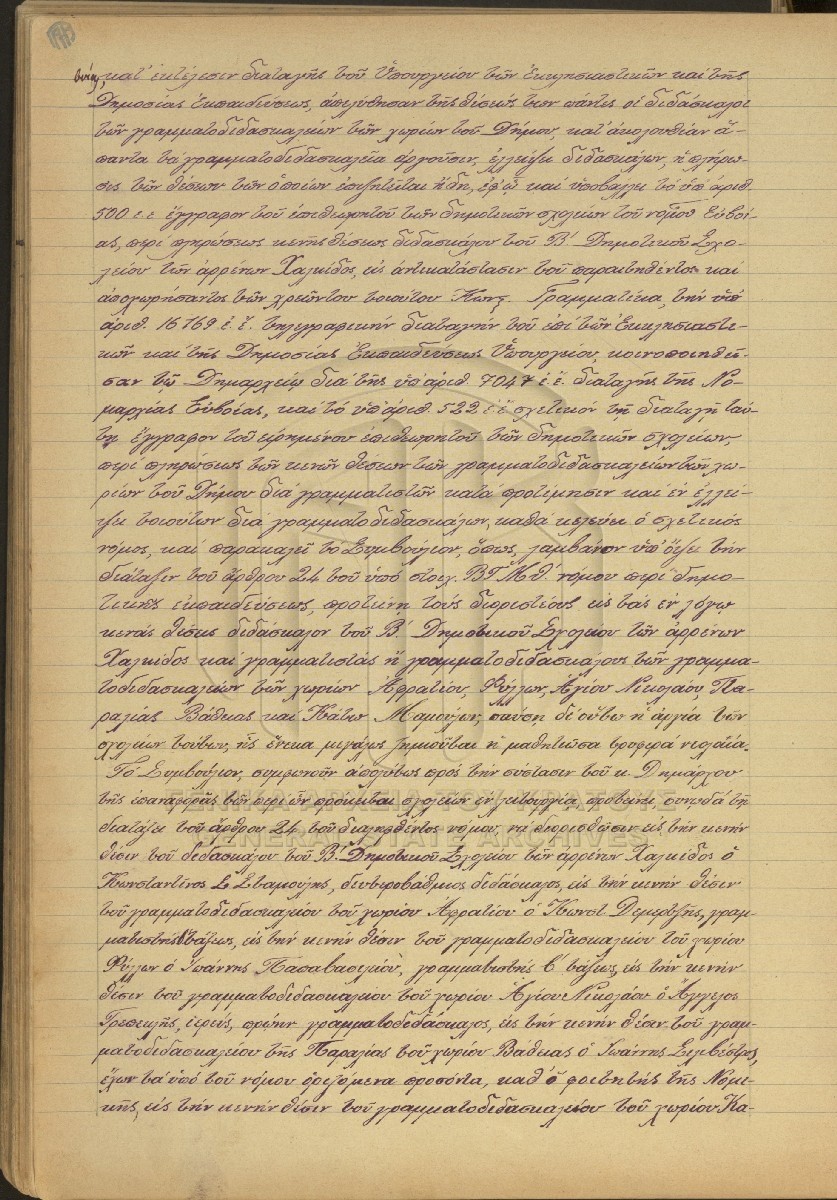 κατ' ἐκτέλεσιν διαταγῆς τοῦ Ὑπουργείου τῶν Ἐκκλησιαστικῶν καὶ τῆς
Δημοσίας Ἐκπαιδεύσεως, ἀπελύθησαν τῆς θέσεώς των πάντες οἱ διδάσκαλοι
τῶν γραμματοδιδασκαλείων τῶν χωρίων τοῦ Δήμου, κατ' ἀκολουθίαν ἅ-
παντα τὰ γραμματοδιδασκαλεῖα ἀργοῦσιν, ἐλλείψει διδασκάλων, ἡ πλήρω-
σις τῶν θέσεων τῶν ὁποίων ἐπιζητεῖται ἤδη, ἐφ' ᾧ καὶ ὑποβάλλει τὸ ὑπ' ἀριθ.
500 ἐ.ἔ. ἔγγραφον τοῦ ἐπιθεωρητοῦ τῶν δημοτικῶν σχολείων τοῦ νομοῦ Εὐβοί-
ας, περὶ πληρώσεως κενῆς θέσεως διδασκάλου τοῦ Β' Δημοτικοῦ Σχο-
λείου τῶν ἀρρένων Χαλκίδος, εἰς ἀντικατάστασιν τοῦ παραιτηθέντος καὶ
ἀποχωρήσαντος τῶν χρεῶν του τοιούτου Κωνσ. Γραμματίκα, τὴν ὑπ'
ἀριθ. 16769 ἐ.ἔ. τηλεγραφικὴν διαταγὴν τοῦ ἐπὶ τῶν Ἐκκλησιαστι-
κῶν καὶ τῆς Δημοσίας Ἐκπαιδεύσεως Ὑπουργείου, κοινοποιηθεῖ-
σαν τῷ Δημαρχείῳ διὰ τῆς ὑπ' ἀριθ. 7047 ἐ.ἔ. διαταγῆς τῆς Νο-
μαρχίας Εὐβοίας, καὶ τὸ ὑπ' ἀριθ. 522 ἐ.ἔ. σχετικὸν τῇ διαταγῇ ταύ-
τῃ ἔγγραφον τοῦ εἰρημένου ἐπιθεωρητοῦ τῶν δημοτικῶν σχολείων,
περὶ πληρώσεως τῶν κενῶν θέσεων τῶν γραμματοδιδασκαλείων τῶν χω-
ρίων τοῦ Δήμου διὰ γραμματιστῶν κατὰ προτίμησιν καὶ ἐν ἐλλεί-
ψει τοιούτων διὰ γραμματοδιδασκάλων, καθὰ κελεύει ὁ σχετικὸς
νόμος, καὶ παρακαλεῖ τὸ Συμβούλιον, ὅπως, λαμβάνον ὑπ' ὄψει τὴν
διάταξιν τοῦ ἄρθρου 24 τοῦ ὑπὸ στοιχ. ΒΤΜΘ' νόμου περὶ δημο-
τικῆς ἐκπαιδεύσεως, προτείνῃ τοὺς διοριστέους εἰς τὰς ἐν λόγῳ
κενὰς θέσεις διδάσκαλον τοῦ Β' Δημοτικοῦ Σχολείου τῶν ἀρρένων
Χαλκίδος καὶ γραμματιστὰς ἢ γραμματοδιδασκάλους τῶν γραμμα-
τοδιδασκαλείων τῶν χωρίων Ἀφρατίου, Φύλλων, Ἁγίου Νικολάου, Πα-
ραλίας Βάθειας καὶ Κάτω Μαμούλων, παύσῃ δὲ οὕτω ἡ ἀργία τῶν
σχολείων τούτων, ἧς ἕνεκα μεγάλως ζημιοῦται ἡ μαθητιῶσα τρυφερὰ νεολαία.
Τὸ Συμβούλιον, συμφωνοῦν ἀπολύτως πρὸς τὴν σύστασιν τοῦ κ. Δημάρχου
τῆς ἐπαναφορᾶς τῶν περὶ ὧν πρόκειται σχολείων ἐν λειτουργίᾳ προτείνει, συνῳδὰ τῇ
διατάξει τοῦ ἄρθρου 24 τοῦ διαληφθέντος νόμου, νὰ διορισθῶσιν εἰς τὴν κενὴν
θέσιν τοῦ διδασκάλου τοῦ Β' Δημοτικοῦ Σχολείου τῶν ἀρρένων Χαλκίδος ὁ
Κωνσταντῖνος Σταμούλης, δευτεροβάθμιος διδάσκαλος, εἰς τὴν κενὴν θέσιν
τοῦ γραμματοδιδασκαλείου τοῦ χωρίου Ἀφρατίου ὁ Κωνστ. Δεμερτζῆς, γραμ-
ματιστὴς τάξεως, εἰς τὴν κενὴν θέσιν τοῦ γραμματοδιδασκαλείου τοῦ χωρίου
Φύλλων ὁ Ἰωάννης Παπαβασιλείου, γραμματιστὴς β' τάξεως, εἰς τὴν κενὴν
θέσιν τοῦ γραμματοδιδασκαλείου τοῦ χωρίου Ἁγίου Νικολάου ὁ Ἄγγελος
ἱερεύς, πρώην γραμματοδιδάσκαλος, εἰς τὴν κενὴν θέσιν τοῦ γραμ-
ματοδιδασκαλείου τῆς Παραλίας τοῦ χωρίου Βάθειας ὁ Ἰωάννης Σιλβέστρος,
ἔχων τὰ ὑπὸ τοῦ νόμου ὁριζόμενα προσόντα, καθ' ὃ φοιτητὴς τῆς Νομι-
κῆς, εἰς τὴν κενὴν θέσιν τοῦ γραμματοδιδασκαλείου τοῦ χωρίου Κά-
ΓΕΝΙΚΑ ΑΡΧΕΙΑ ΤΟΥ ΚΡΑΤΟΥΣ
GENERAL STATE ARCHIVES